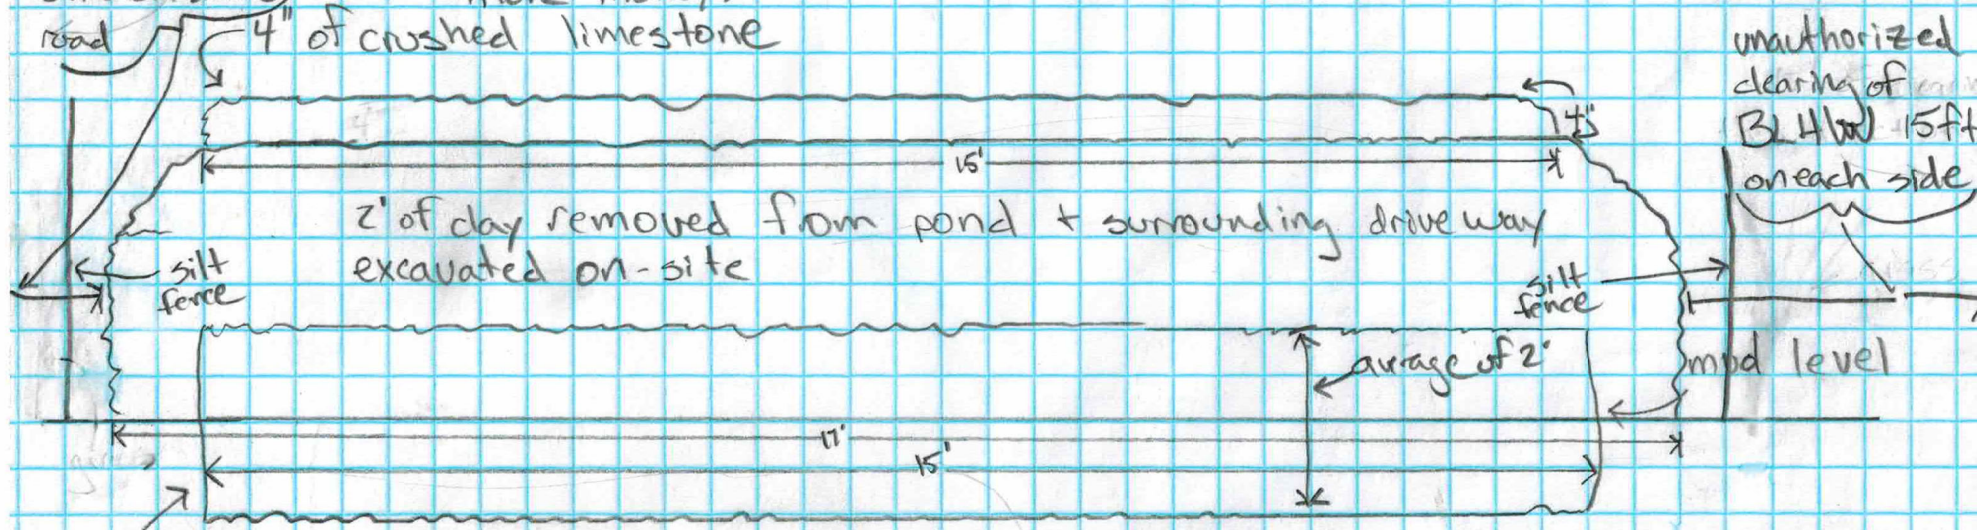 road
4" of crushed limestone
unauthorized
clearing of
BLHW 15ft
on each side
4"
15'
2' of clay removed from pond + surrounding driveway
excavated on-site
silt
fence
silt
fence
average of 2'
mud level
17'
15'